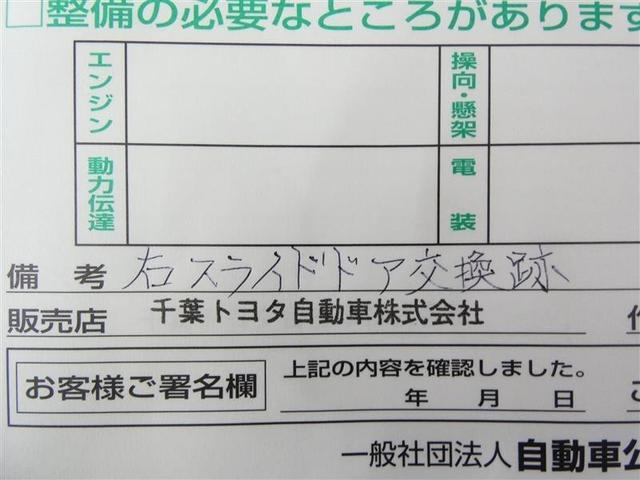 □整備の必要なところがあります
エンジン
操向・懸架
動力伝達
電装
備考 右スライドドア交換跡
販売店 千葉トヨタ自動車株式会社
お客様ご署名欄
上記の内容を確認しました。
年 月 日
一般社団法人 自動車公